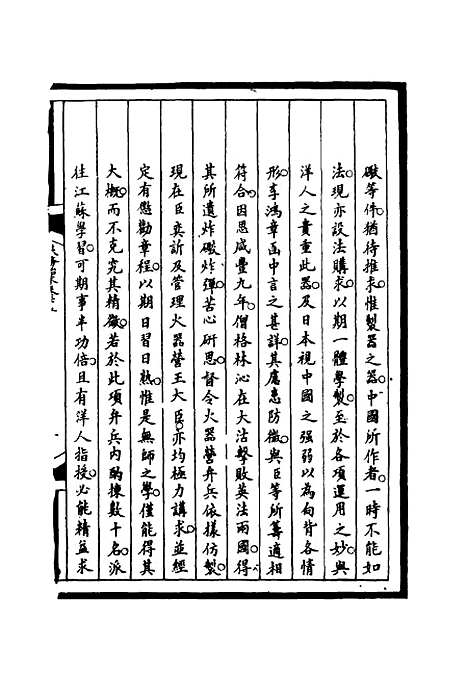 礮等件猶待推求。惟製器之器。中國所作者。一時不能如
法。現亦設法購求。以期一體學製。至於各項運用之妙。與
洋人之貴重此器。及日本視中國之強弱以為向背各情
形。李鴻章函中言之甚詳。其慮患防微。與臣等所籌適相
符合。因思咸豐九年。僧格林沁在大沽擊敗英法兩國。得
其所遺炸礮炸彈。苦心研思。督令火器營弁兵依樣仿製。
現在臣奕訢及管理火器營王大臣。亦均極力講求。並經
定有懲勸章程。以期日習日熟。惟是無師之學。僅能得其
大概。而不克究其精微。若於此項弁兵內。酌揀數十名。派
往江蘇學習。可期事半功倍。且有洋人指授。必能精益求